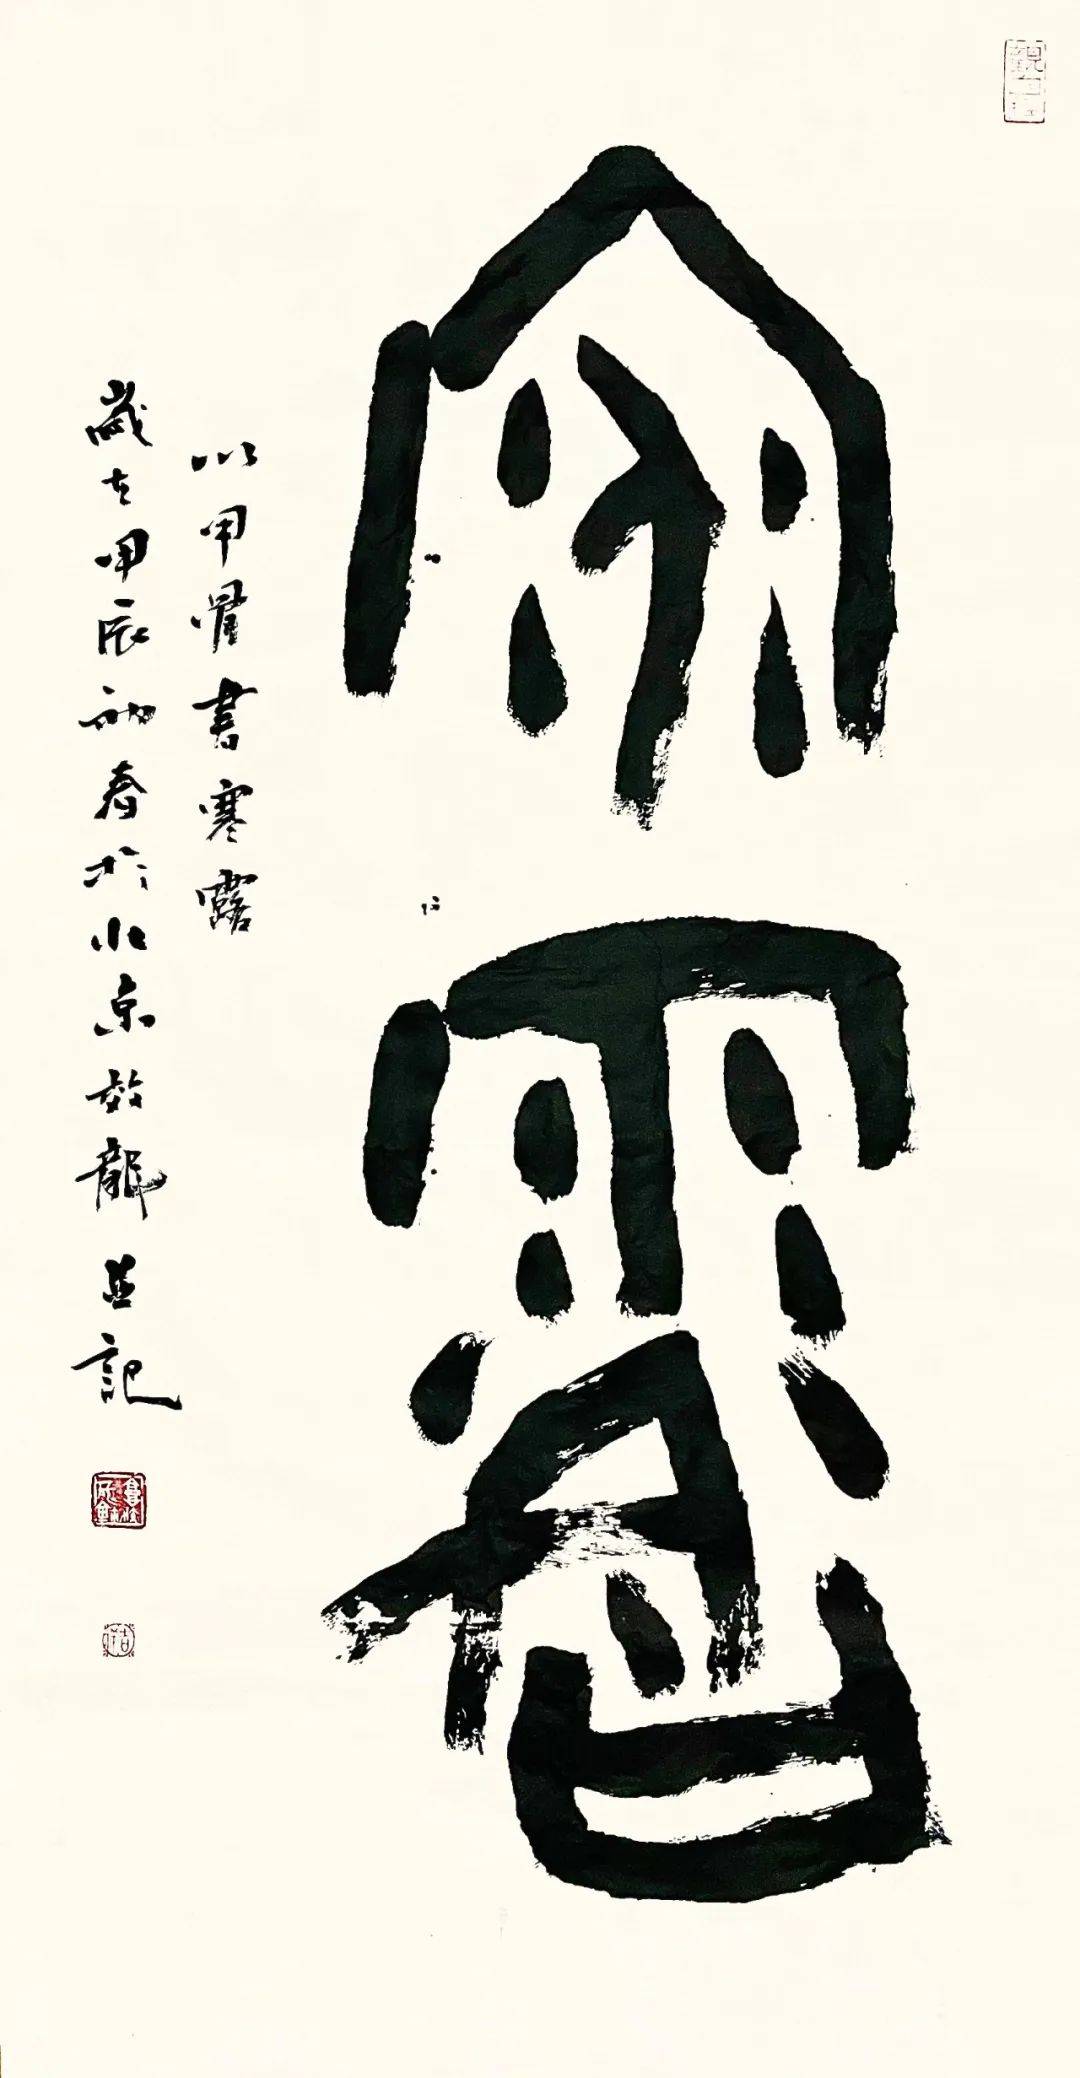 寒露
以甲骨書寒露
歲在甲辰初春於北京放龍並記